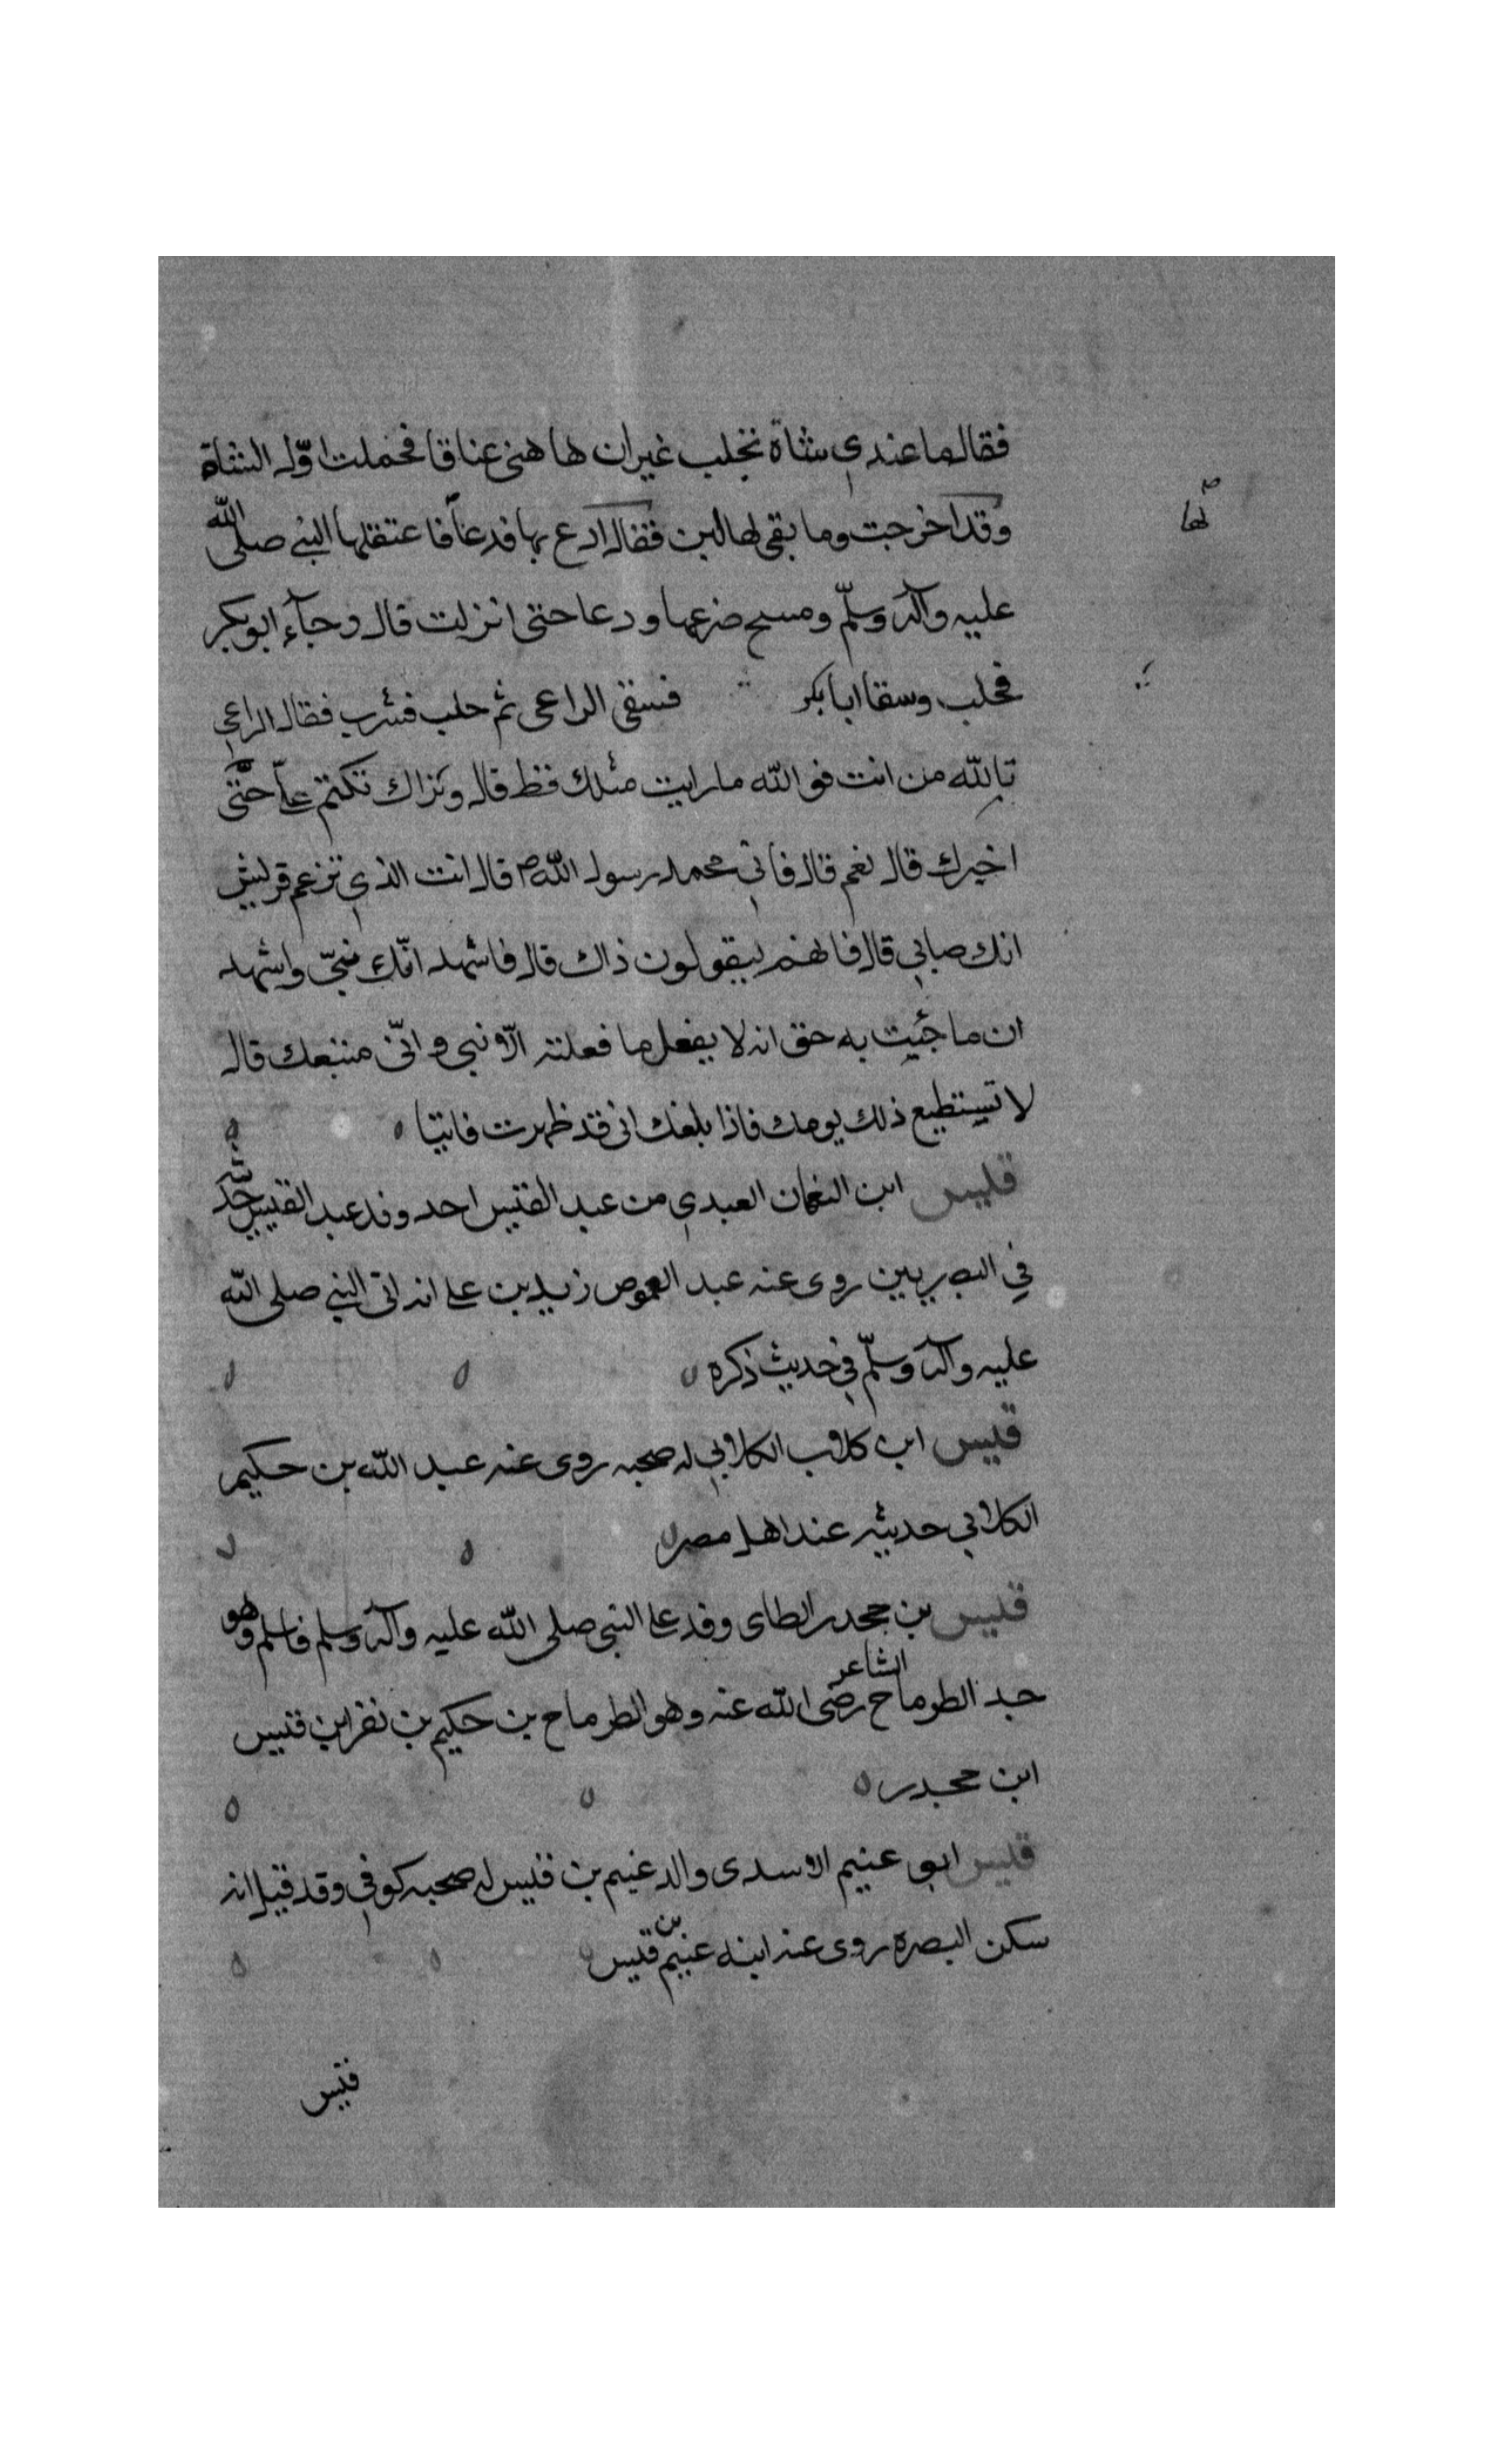 فقال ما عندي شاة تحلب غير ان ها هنى عناقا فحملت اوّل الشاة
وقد اخرجت وما بقى لها لبن فقال ادع بها فدعا فاعتقلها النبي صلى الله
لها
عليه وآله وسلّم ومسح ضرعها ودعا حتى انزلت قال وجآء ابو بكر
فحلب وسقا ابا بكر فسقى الراعى ثم حلب فشرب فقال الراعي
تالله من انت فو الله ما رايت مثلك قط قال وتراك تكتم علىّ حتّى
اخبرك قال نعم قال فانى محمد رسول الله ص قال انت الذي تزعم قريش
انك صابي قال فانهم ليقولون ذاك قال فاشهد انّك نبيّ واشهد
ان ما جئيت به حق انه لا يفعل ما فعلته الّا نبي وانّى متبعك قال
لا تستطيع ذلك يومك فاذا بلغك انى قد ظهرت فاتينا
قيس ابن النعمان العبدي من عبد القيس احد وفد عبد القيس
في البصريين روى عنه عبد القموص زيد بن على انه اتى النبي صلى الله
عليه وآله وسلّم في حديث ذكره
قيس ابن كلاب الكلابي له صحبه روى عنه عبد الله بن حكيم
الكلابي حديثه عند اهل مصر
قيس بن جحدر الطاى وفد على النبي صلى الله عليه وآله وسلم فاسلم وهو
جد الطوماح الشاعر رضى الله عنه وهو الطرماح بن حكيم بن نفر ابن قيس
ابن جحدر
قيس ابو غنيم الاسدى والد غنيم بن قيس له صحبه كوفي وقد قيل انه
سكن البصره روى عنه ابنه غنيم بن قيس
قيس